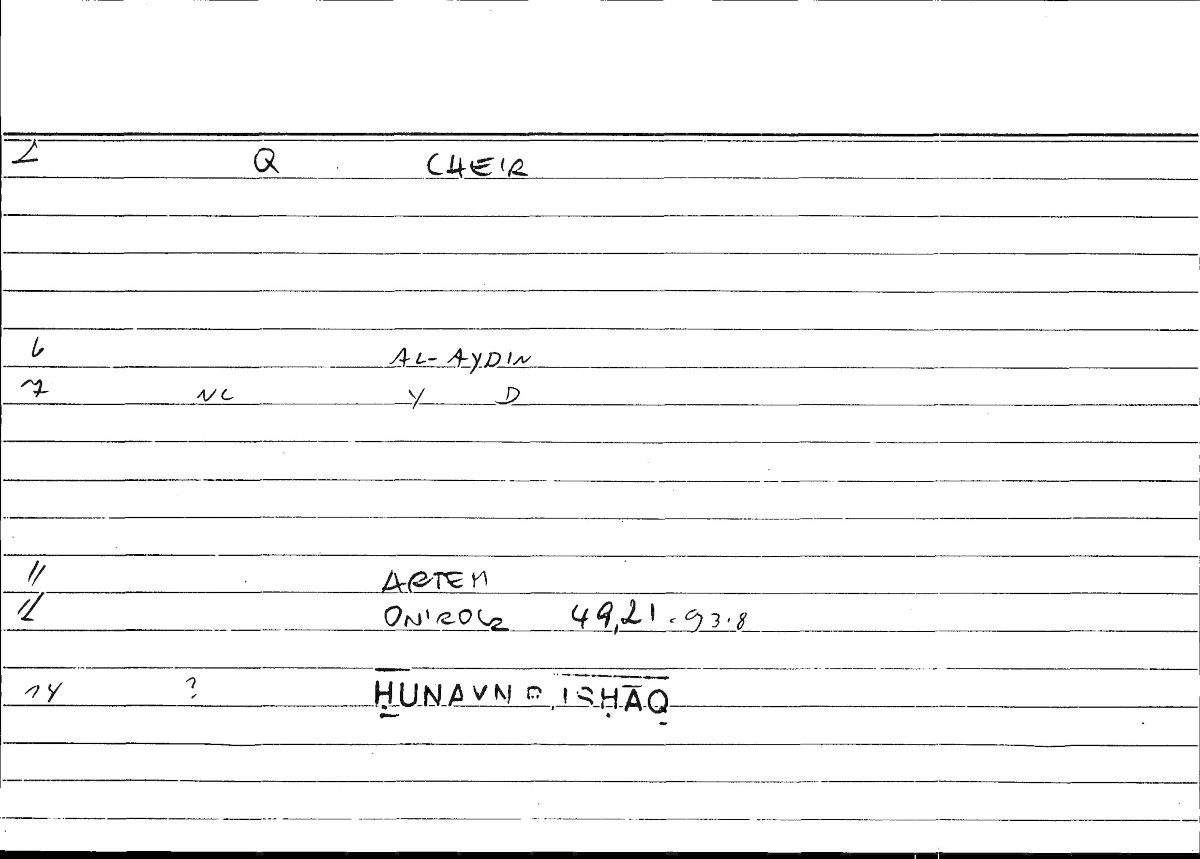 2 Q CHEIR
6 AL-AYDIN
7 NC Y D
11 ARTEM
12 ONIROCR 49,21-93.8
14 ? ḤUNAYN B. ISḤĀQ